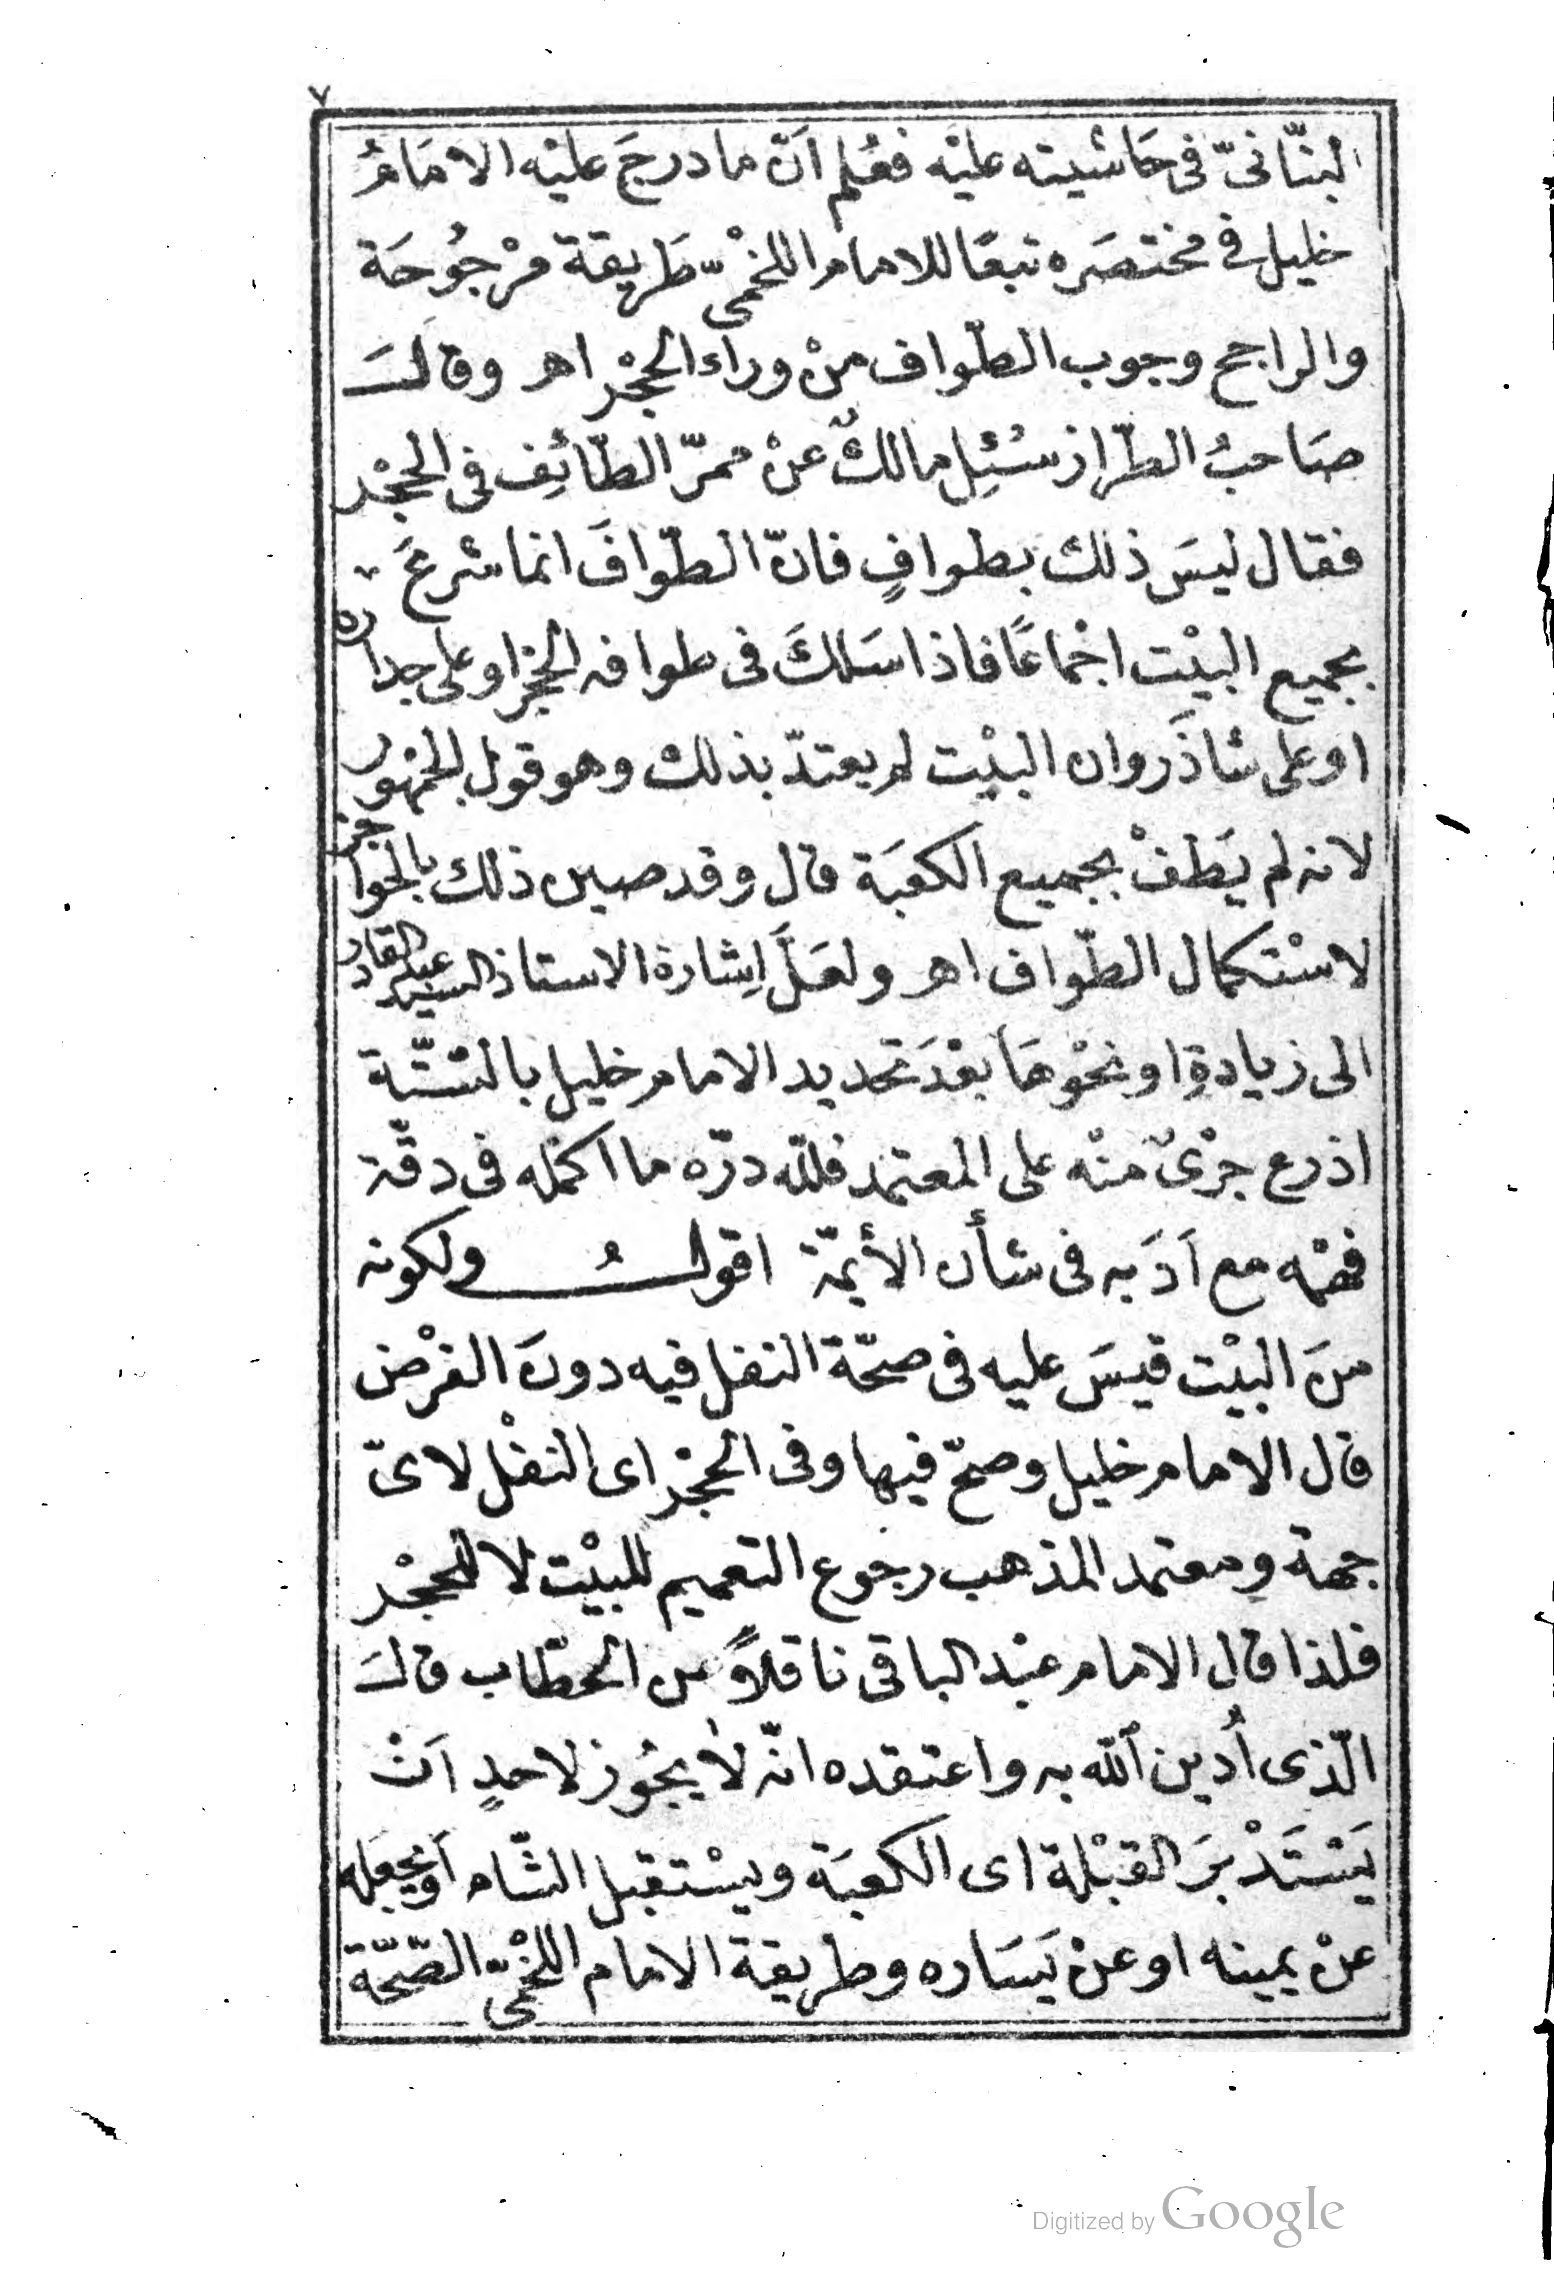 ٧
البنّانىّ فى حَاشيته عليْه فعُلم اَنّ ما درجَ عليْه الامَامُ
خليل فى مختصَره تبعًا للامام اللخْمىّ طَريقة مرْجُوحَة
والراجح وجوب الطّواف منْ وراء الحجْر اهـ وقالَ
صَاحبُ الطّراز سُئِل مالكٌ عنْ ممرّ الطّائِف فى الحجْر
فقال ليسَ ذلك بطوافٍ فانّ الطّوافَ انما شرعَ
بجميع البيْت اجْماعًا فاذا سَلكَ فى طوافه الحِجْر او على جداره
او على شاذَروان البيْت لم يعتدّ بذلك وهو قول الجمْهور
لانه لم يَطفْ بجميع الكعبَة قال وقد صين ذلك بالحواجز
لاسْتكمال الطّواف اهـ ولعَلَّ اِشارة الاستاذ السيد عبد القادر
الى زيادةِ او نحْوهَا بعْدَ تحديد الامام خليل بالسّتّة
اذرع جرْىٌ منْه على المعتمد فللّه درّه ما اكمْله فى دقّة
فهْمه مع اَدَبه فى شأن الأيمّة اقولُ ولكونه
منَ البيْت قيسَ عليه فى صحّة النفل فيه دونَ الفرْض
قال الامام خليل وصحّ فيها وفى الحجْر اى النفْل لاىّ
جهة ومعتمد المذهب رجوع التعميم للبيْت لا للحجْر
فلذا قال الامام عبْد الباقى ناقلاً عن الحطّاب قالَ
الّذى اُدين اللّه به واعتقده انّه لا يجُوز لاحدٍ اَنْ
يَسْتَدْبرَ القبْلة اى الكعبَة ويسْتقبل الشّام اَوْ يجعَله
عنْ يمينه او عنْ يَسَاره وطريقة الامام اللخْمىّ الصّحّة
Digitized by Google